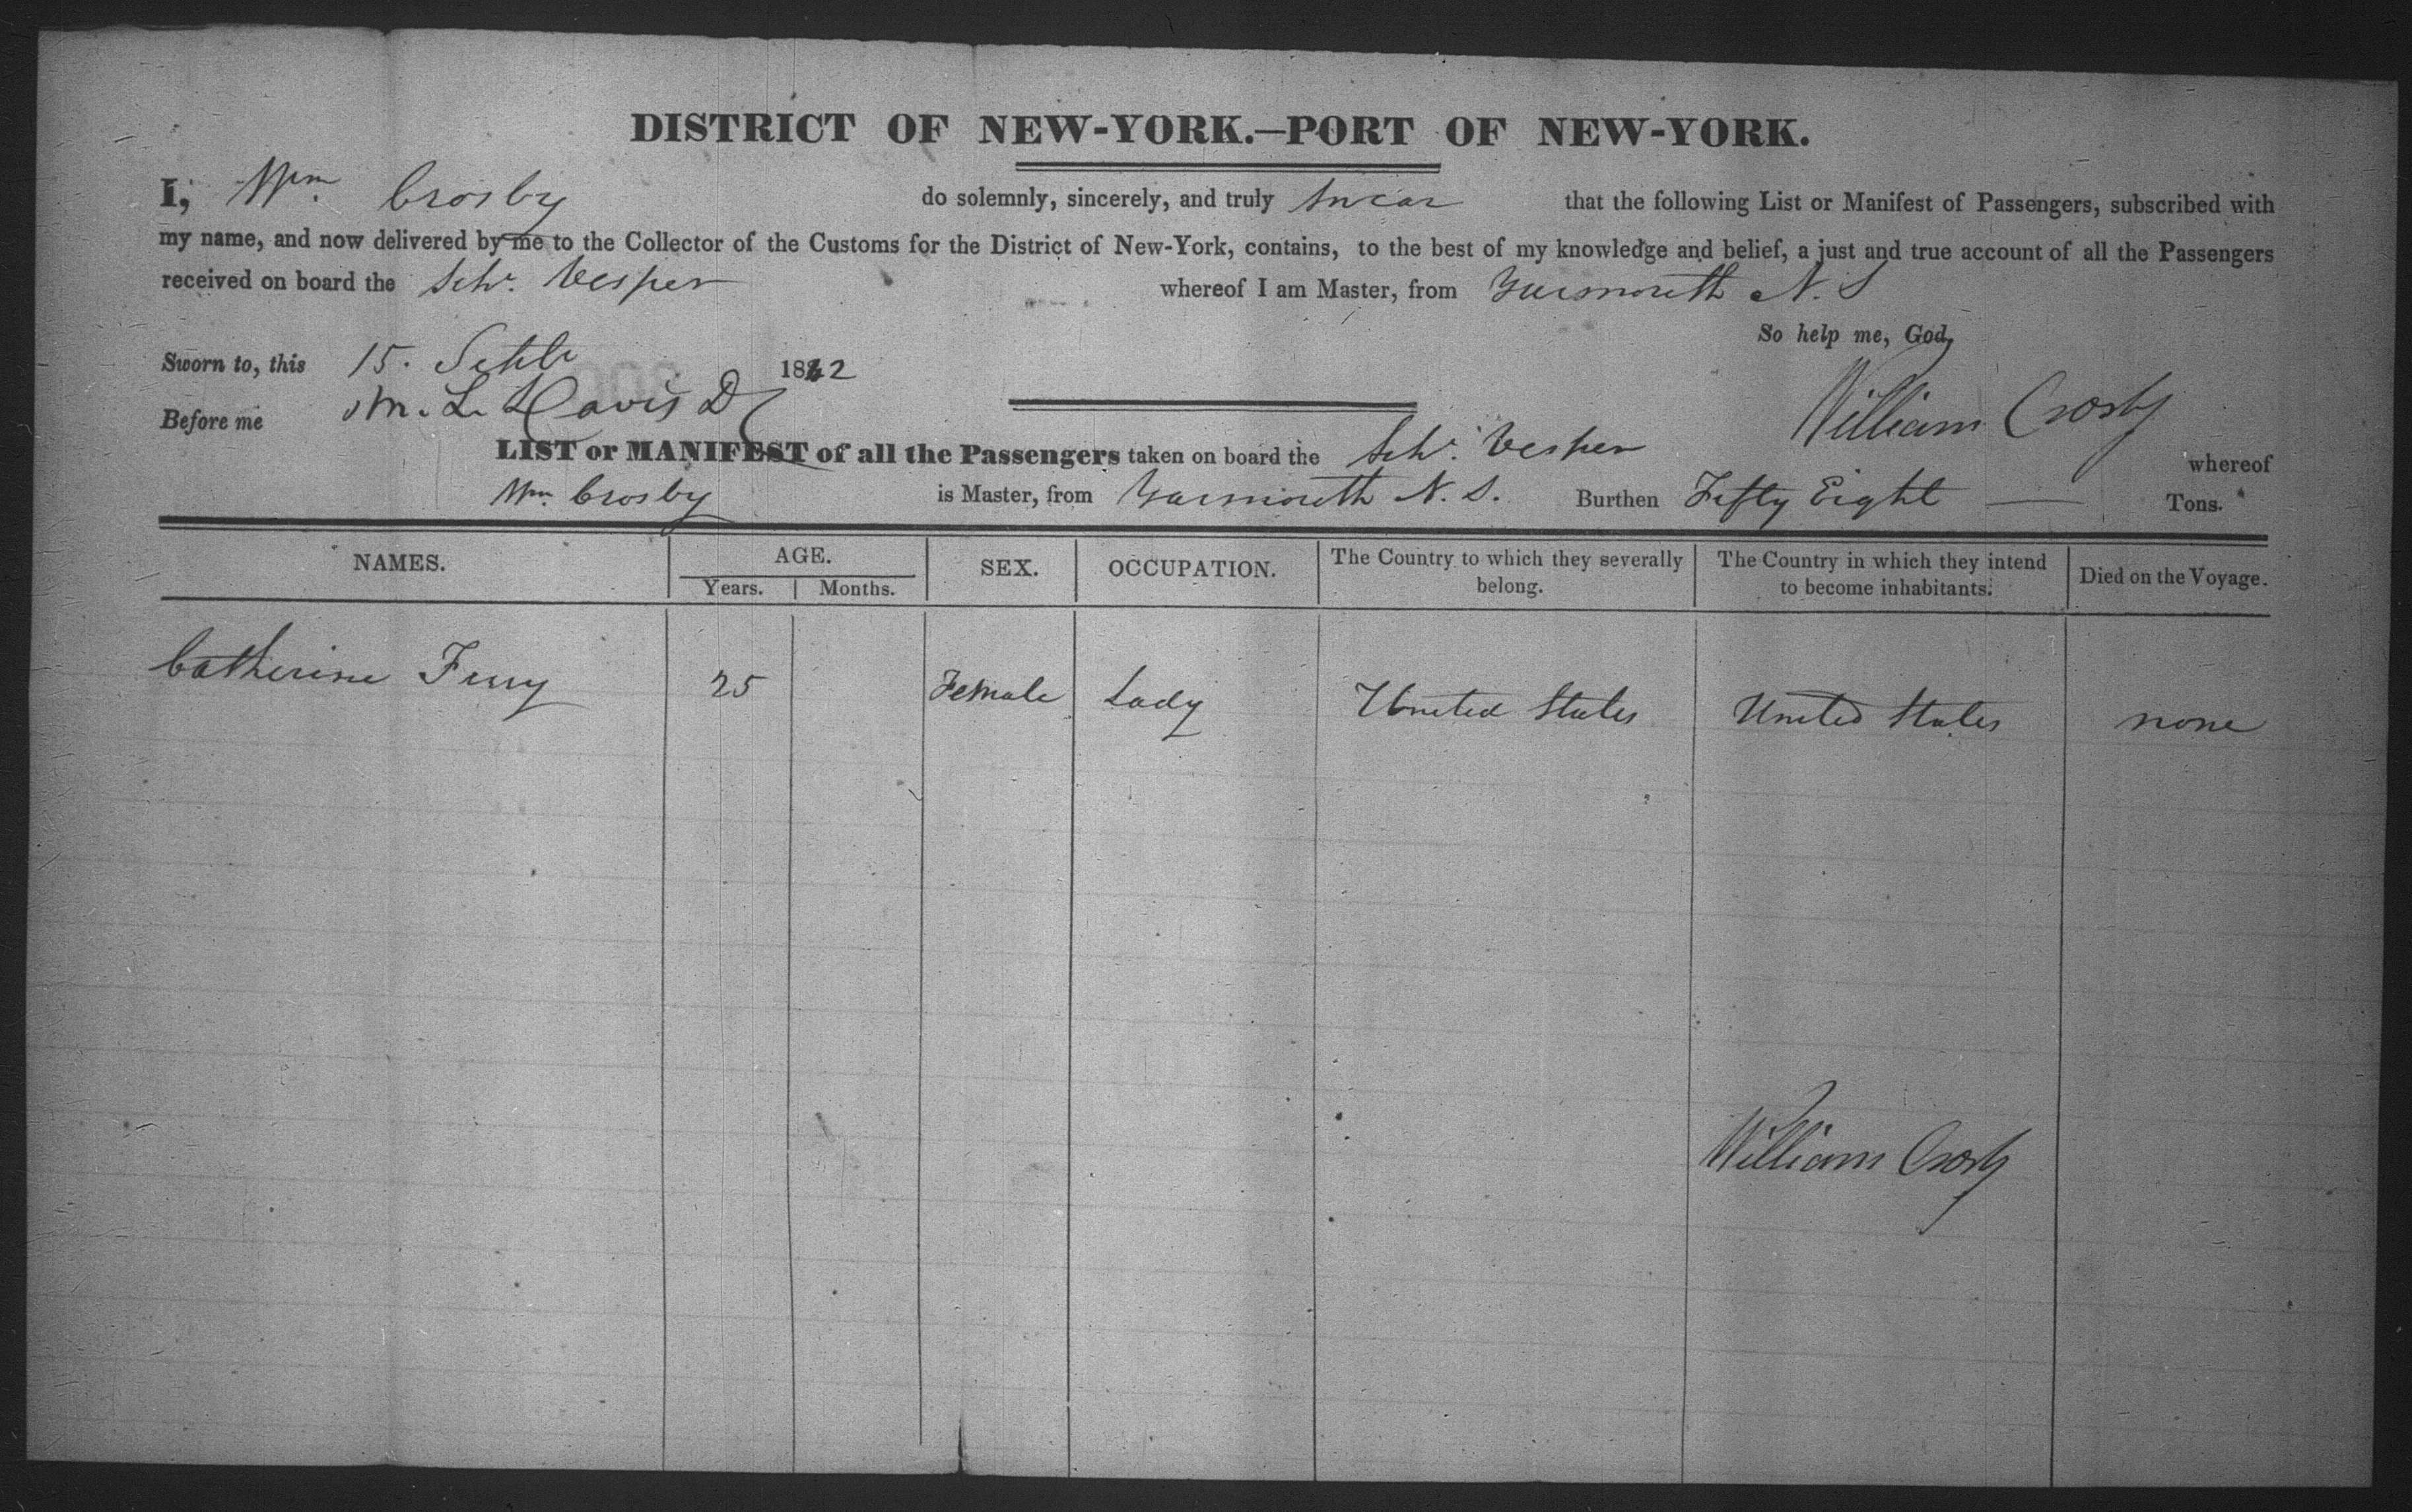 DISTRICT OF NEW-YORK.—PORT OF NEW-YORK.
I, Wm. Crosby do solemnly, sincerely, and truly swear that the following List or Manifest of Passengers, subscribed with
my name, and now delivered by me to the Collector of the Customs for the District of New-York, contains, to the best of my knowledge and belief, a just and true account of all the Passengers
received on board the Schr. Vesper whereof I am Master, from Yarmouth N. S
So help me, God,
Sworn to, this 15. Septbr 1842
William Crosby
Before me M. L. Davis
LIST or MANIFEST of all the Passengers taken on board the Schr. Vesper whereof
Wm. Crosby is Master, from Yarmouth N. S. Burthen Fifty Eight — Tons.
NAMES. AGE. SEX. OCCUPATION. The Country to which they severally belong. The Country in which they intend to become inhabitants. Died on the Voyage.
Years. Months.
Catherine 25 Female Lady United States United States none
William Crosby